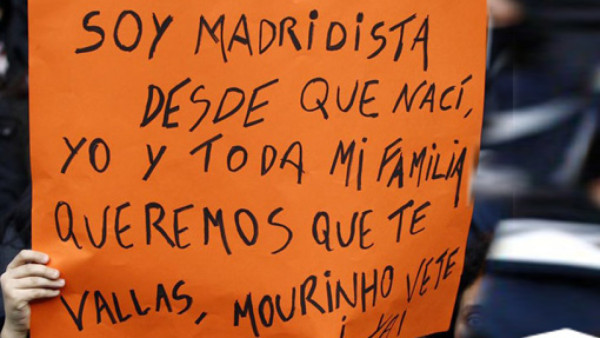 SOY MADRIDISTA
DESDE QUE NACÍ,
YO Y TODA MI FAMILIA
QUEREMOS QUE TE
VALLAS, MOURINHO VETE
¡ YA!